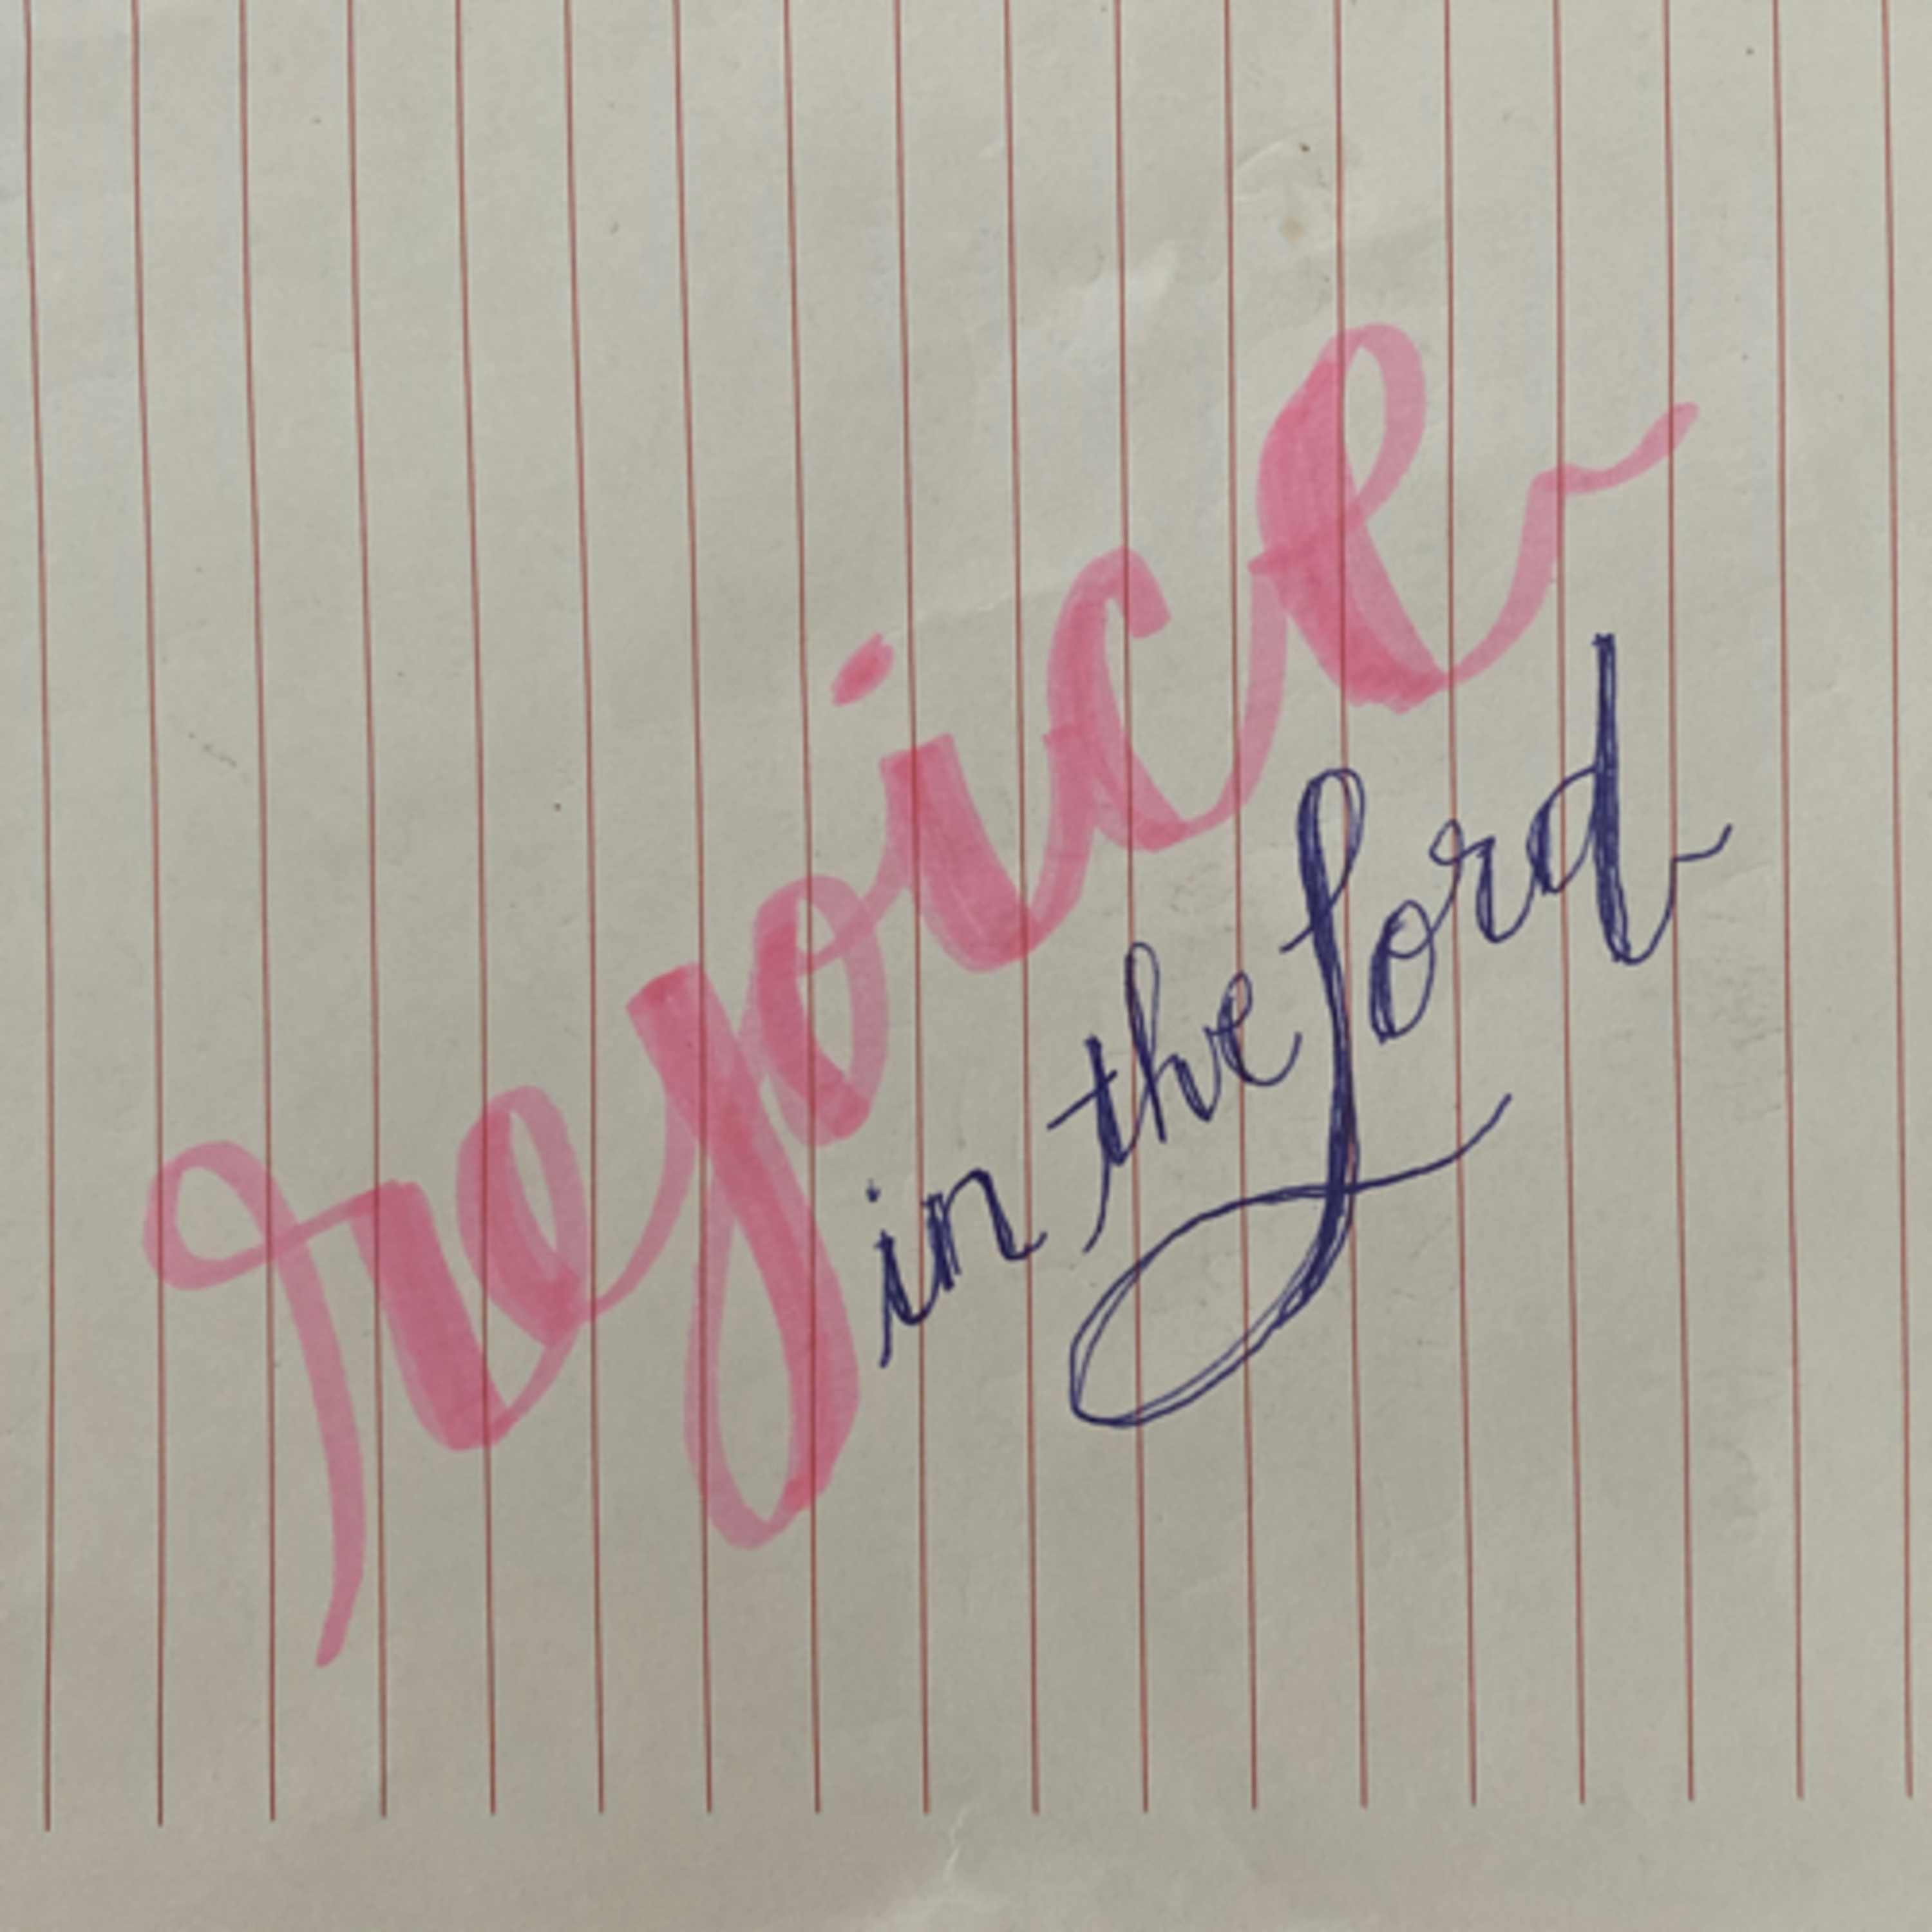 rejoice
in the Lord